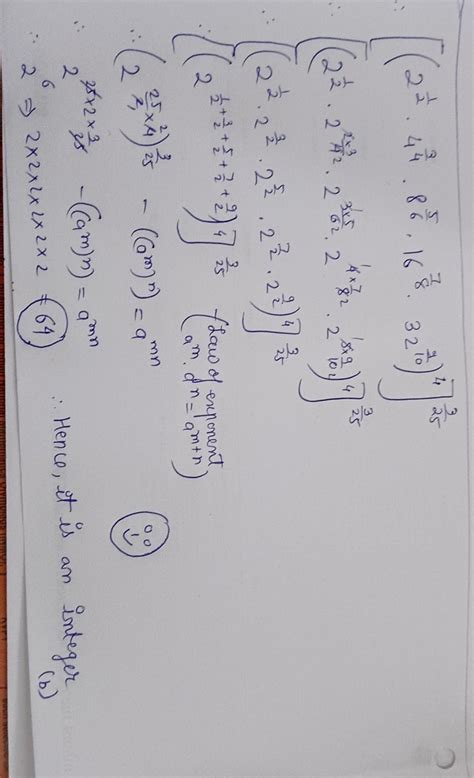 [(2^{1/2} · 4^{3/4} · 8^{5/6} · 16^{7/8} · 32^{9/10})^4]^{3/25}
[(2^{1/2} · 2^{2×3/4 2} · 2^{3×5/6 2} · 2^{4×7/8 2} · 2^{5×9/10 2})^4]^{3/25}
[(2^{1/2} · 2^{3/2} · 2^{5/2} · 2^{7/2} · 2^{9/2})^4]^{3/25}
[(2^{1/2+3/2+5/2+7/2+9/2})^4]^{3/25} (Law of exponent
a^m · a^n = a^{m+n})
∴ (2^{25/2 × 4 2})^{3/25} – ((a^m)^n) = a^{mn}
∴ 2^{25×2×3/25} – ((a^m)^n) = a^{mn}
∴ 2^6 ⇒ 2×2×2×2×2×2 = 64 ∴ Hence, it is an integer
(b)